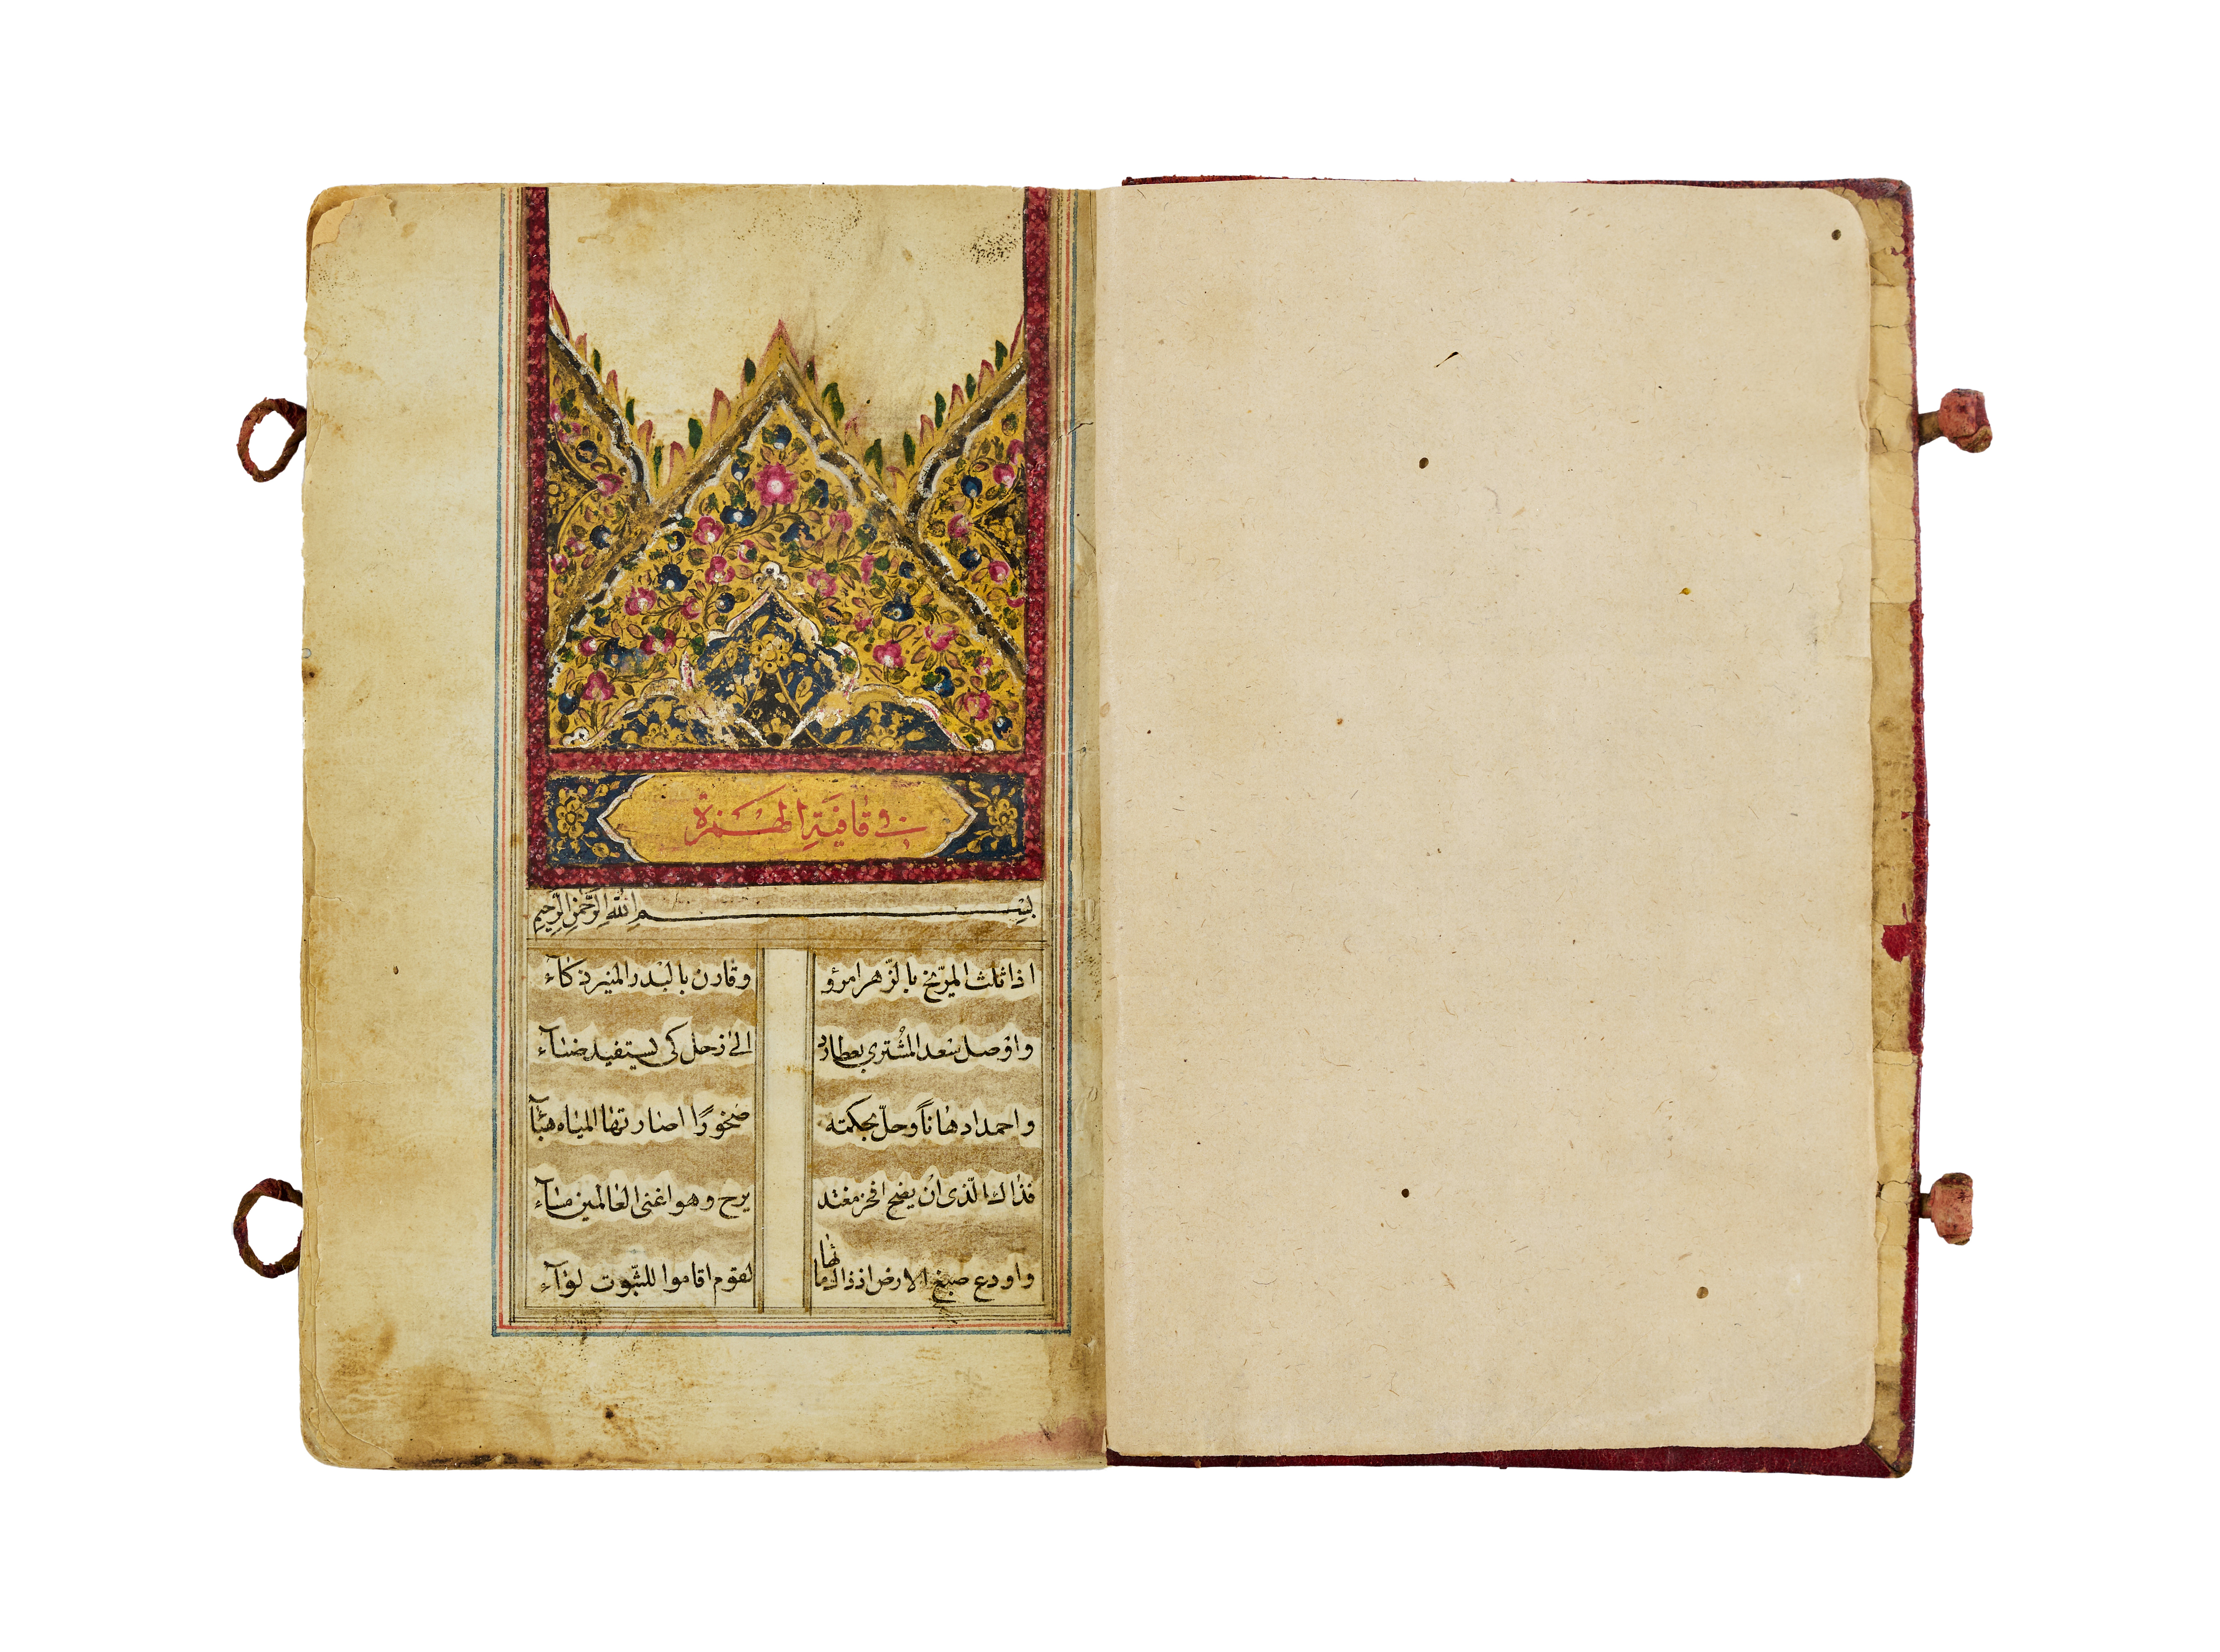 في قافيةِ الهَمزة
بِسْمِ اللّٰهِ الرَّحْمٰنِ الرَّحِيمِ
اذا ثلث المرّيخ بالزّهرا مرؤ وقارن بالبْدر المنير ذكآء
واوْصل سَعد المشْتري بعطارد الى زحل كى يستفيد ضيآء
واحمد ادهاناً وحلّ بحكمته صَخورًا اصارتها المياه هبآء
فذاك الّذى ان يضح افخر مغتد يرح وهو اغنى العٰالمين مسآء
واودع صبغ الارض اذ ذاك ماثها لقوم اقاموا للثّبوت لوٰآء